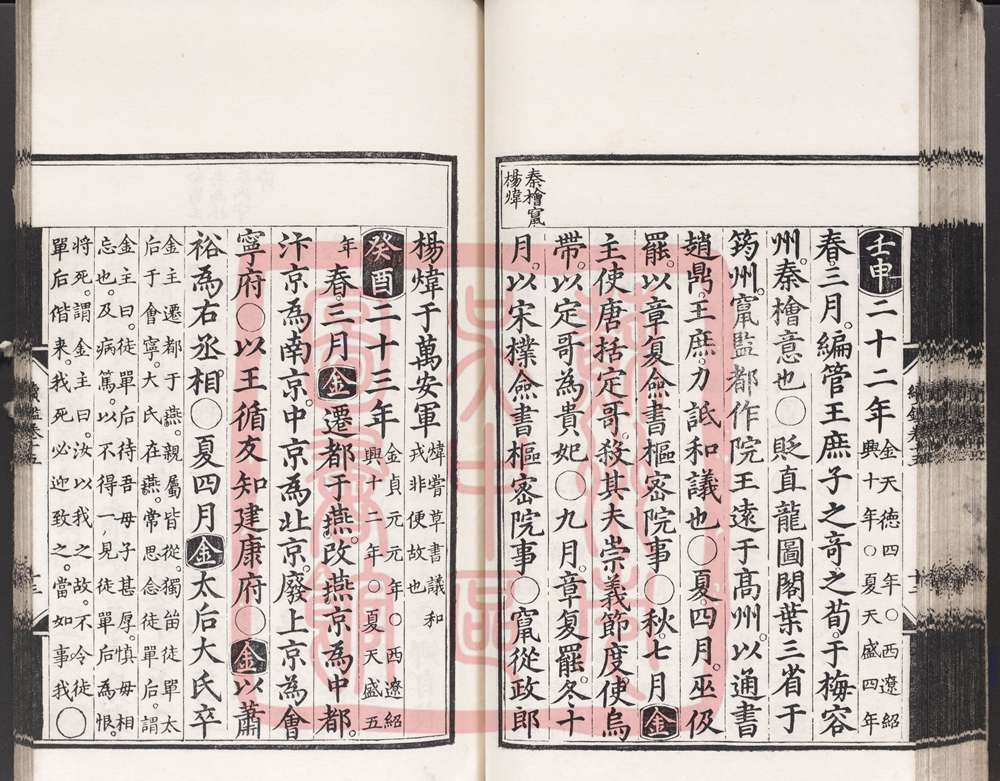 秦檜竄
楊煒
壬申二十二年金天德四年○西遼紹
興十年○夏天盛四年
春。三月。編管王庶子之奇之荀。于梅容
州。秦檜意也○貶直龍圖閣葉三省于
筠州。竄監都作院王遠于高州。以通書
趙鼎。王庶。力詆和議也○夏四月。巫伋
罷。以章复僉書樞密院事○秋。七月金
主使唐括定哥。殺其夫崇義節度。使烏
帶。以定哥為貴妃○九月。章复罷。冬十
月。以宋樸。僉書樞密院事○竄從政郎
楊煒于萬安軍煒嘗草書議和
戎非便故也
癸酉二十三年金貞元元年○西遼紹
興十二年○夏天盛五
年春。三月金遷都于燕。改燕京為中都。
汴京為南京。中京為北京。廢上京為會
寧府○以王循友知建康府○金以蕭
裕為右丞相○夏四月金太后大氏卒
金主遷都于燕。親屬皆從。獨笛徒單太
后于會寧。大氏在燕。常思念徒單后。謂
金主曰。徒單后待吾母子甚厚。慎毋相
忘也。及病篤。以不得一見徒單后為恨。
將死。謂金主曰。汝以我之故。不令徒
單后偕來。我死必迎致之。當如事我○
續鑑卷十五
十三